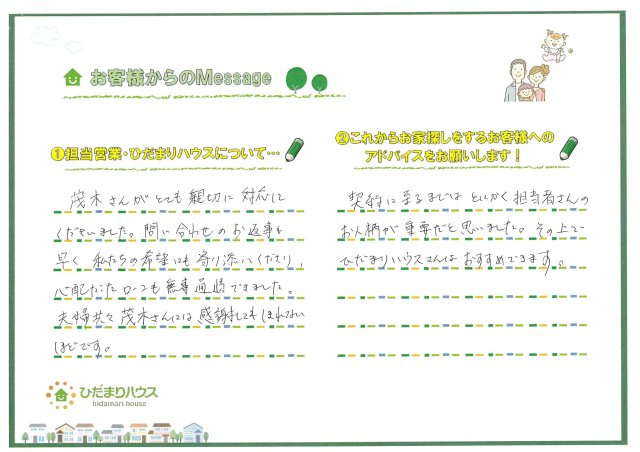 お客様からのMessage
①担当営業・ひだまりハウスについて…
茂木さんがとても親切に対応して
くださいました。問い合わせのお返事も
早く私たちの希望にも寄り添いくださり、
心配だったローンも無事通過できました。
夫婦共々茂木さんには感謝してもしきれない
ほどです。
②これからお家探しをするお客様への
アドバイスをお願いします！
契約に至るまではとにかく担当者さんの
お人柄が重要だと思いました。その上で
ひだまりハウスさんはおすすめできます。
ひだまりハウス
hidamari house